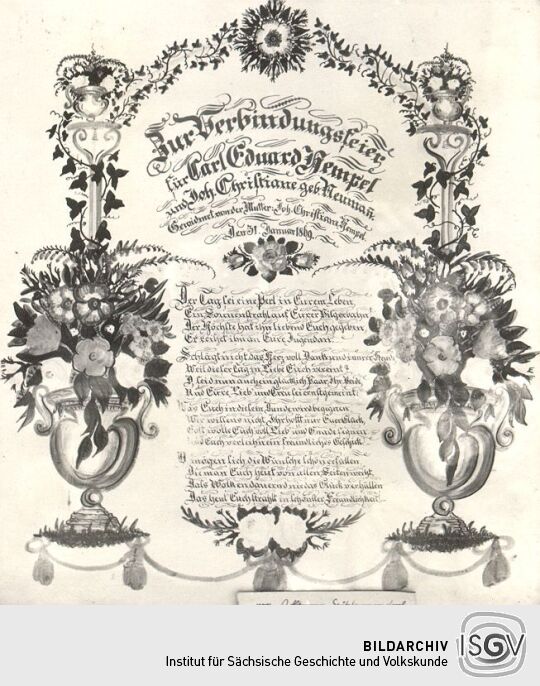 Zur Verbindungsfeier
für Carl Eduard Hempel
und Joh. Christiane geb. Neumañ
Gewidmet von der Mutter: Joh. Christiane Hempel
Den 31. Januar 1869.
Der Tag sei eine Perl in Eurem Leben
Ein Sonnenstrahl auf Eurer Pilgerbahn
Der Höchste hat ihn liebend Euch gegeben
Er reihet ihn an Eure Jugend an.
Schlägt nicht das Herz voll Dank und
Weil dieser Tag in Liebe Euch vereint?
O seid nun auch ein glücklich Paar Ihr Beide
Und Eure Lieb und Treu sei ernst gemeint.
Was Euch in diesem Bunde wird begegnen
Wir wissens nicht Ihr hofft nur Euer Glück
Gott wolle Euch voll Lieb und Gnade segnen
Und Euch verleihn ein freundliches Geschick.
O mögen sich die Wünsche schön erfüllen
Die man Euch heut von allen Seiten weiht
Das heut Euch strahlt in schönster Freundlichkeit
BILDARCHIV
Institut für Sächsische Geschichte und Volkskunde
ISGV